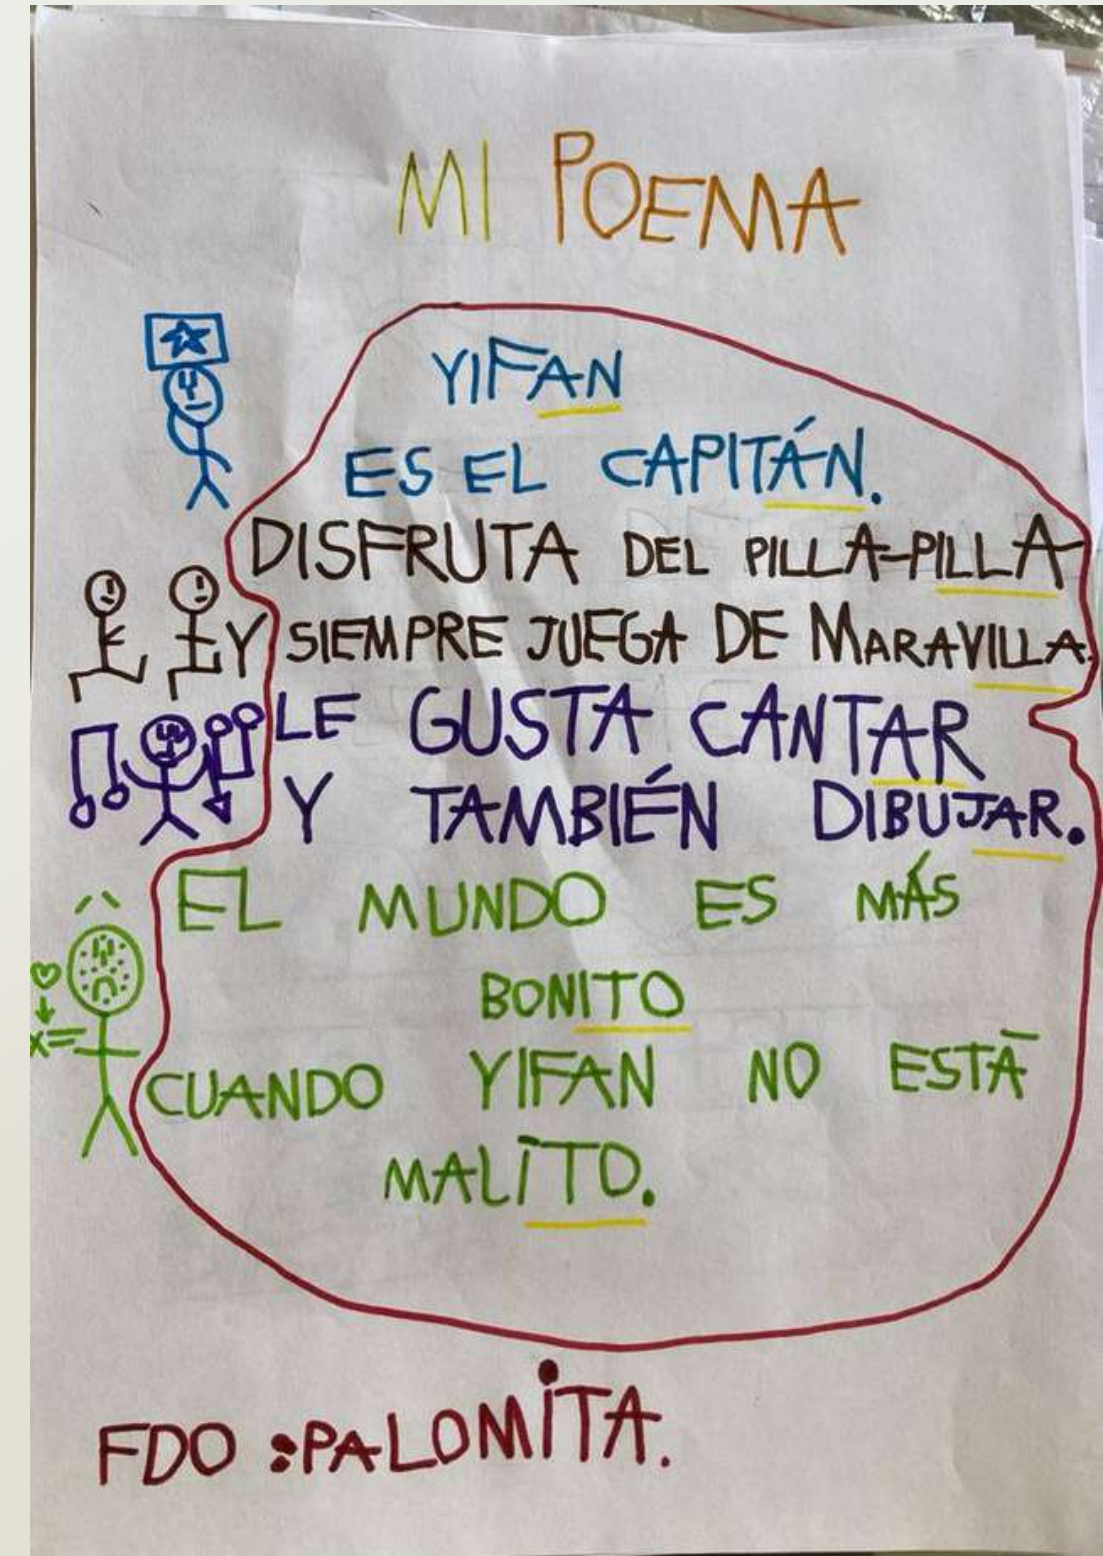 MI POEMA
YIFAN
ES EL CAPITÁN.
DISFRUTA DEL PILLA-PILLA
Y SIEMPRE JUEGA DE MARAVILLA.
LE GUSTA CANTAR
Y TAMBIÉN DIBUJAR.
EL MUNDO ES MÁS
BONITO
CUANDO YIFAN NO ESTÁ
MALITO.
FDO : PALOMITA.